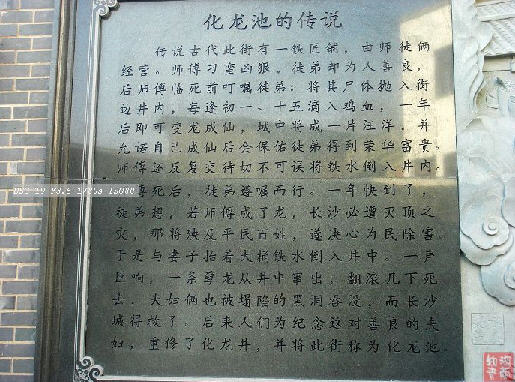 化龙池的传说
传说古代此街有一铁匠铺，由师徒俩
经营。师傅刁蛮凶狠，徒弟却为人善良，
后师傅临死前叮嘱徒弟：将其尸体抛入街
边井内，每逢初一、十五滴入鸡血，一年
后即可变龙成仙，城中将成一片汪洋，并
允诺自己成仙后会保佑徒弟得到荣华富贵。
师傅还反复交待切不可误将铁水倒入井内。
死后，徒弟遵嘱而行。一年快到了，
徒弟想，若师傅成了龙，长沙必遭灭顶之
灾，那将殃及平民百姓，遂决心为民除害
于是与妻子抬着大桶铁水倒入井中。一声
巨响，一条孽龙从井中窜出，翻滚几下死
去。夫妇俩也被塌陷的黑洞吞没，而长沙
城得救了。后来人们为纪念这对善良的夫
妇，重修了化龙井，并将此街称为化龙池。